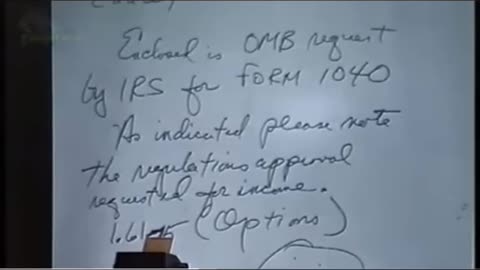 Enclosed is OMB request
by IRS for FORM 1040
As indicated please note
the regulations approval
requested for income.
(Options)